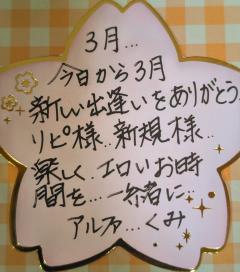 3月...
今日から3月
新しい出逢いをありがとう
リピ様..新規様..
楽しく.エロいお時
間を...一緒に..
アルファ...くみ